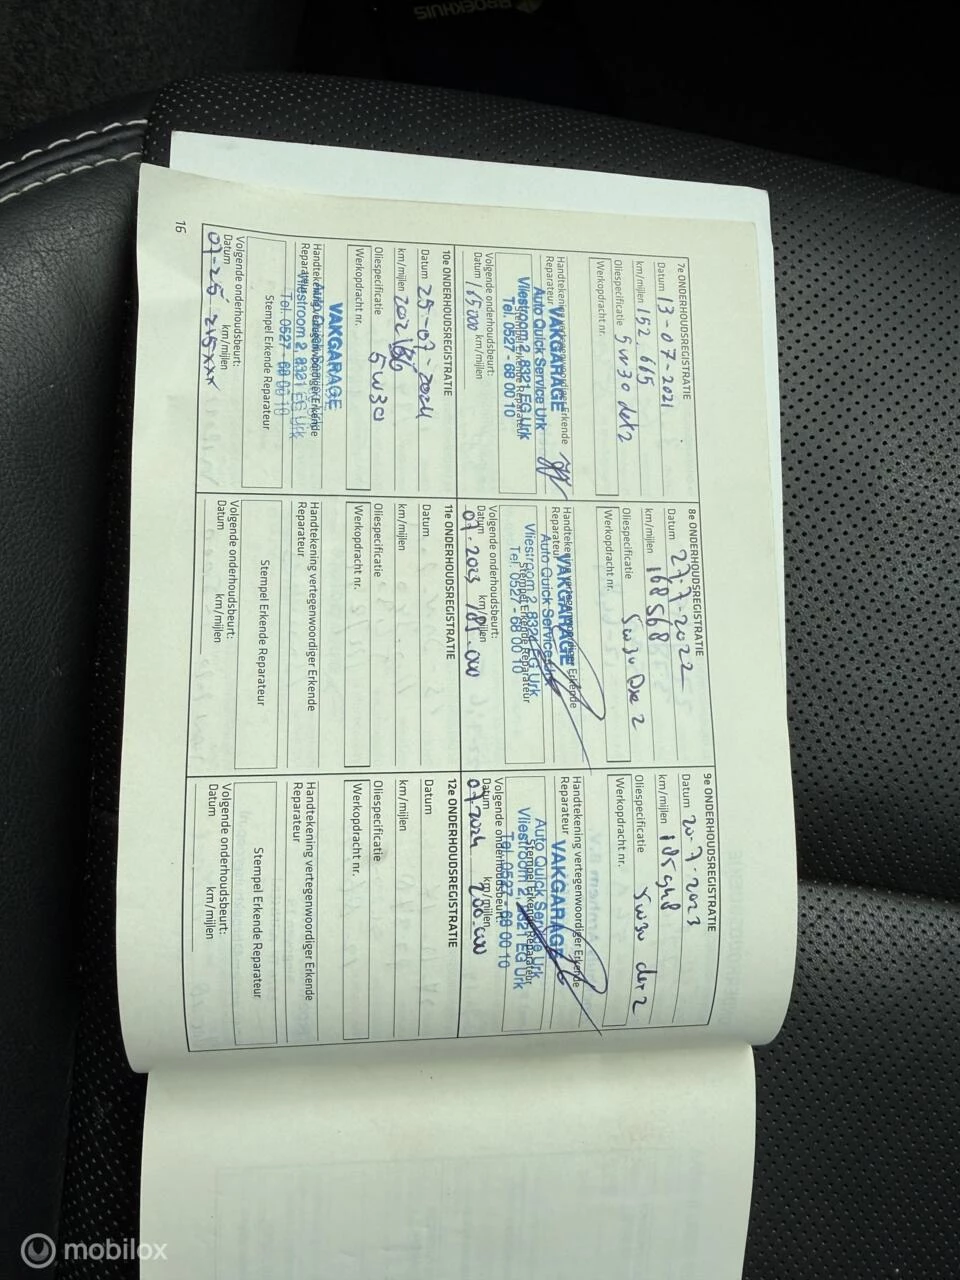 BROEKHUIS
7e ONDERHOUDSREGISTRATIE
Datum 13-07-2021
km/mijlen 152.665
Oliespecificatie 5w30 dex2
Werkopdracht nr.
Handtekening vertegenwoordiger Erkende
Reparateur
VAKGARAGE
Auto Quick Service Urk
Vliestroom 2, 8321 EG Urk
Tel. 0527 - 68 00 10
Stempel Erkende Reparateur
Volgende onderhoudsbeurt:
Datum km/mijlen
8e ONDERHOUDSREGISTRATIE
Datum 27-7-2022
km/mijlen 168568
Oliespecificatie 5w30 Dex 2
Werkopdracht nr.
Handtekening vertegenwoordiger Erkende
Reparateur
VAKGARAGE
Auto Quick Service Urk
Vliestroom 2, 8321 EG Urk
Tel. 0527 - 68 00 10
Stempel Erkende Reparateur
Volgende onderhoudsbeurt:
Datum km/mijlen
07-2023 185.000
9e ONDERHOUDSREGISTRATIE
Datum 20-7-2023
km/mijlen
Oliespecificatie 5w30 dex 2
Werkopdracht nr.
Handtekening vertegenwoordiger Erkende
Reparateur
VAKGARAGE
Auto Quick Service Urk
Vliestroom 2, 8321 EG Urk
Tel. 0527 - 68 00 10
Stempel Erkende Reparateur
Volgende onderhoudsbeurt:
Datum km/mijlen
07-2024 200.000
10e ONDERHOUDSREGISTRATIE
Datum 25-07-2024
km/mijlen
Oliespecificatie 5w30
Werkopdracht nr.
VAKGARAGE
Handtekening vertegenwoordiger Erkende
Reparateur
Auto Quick Service Urk
Vliestroom 2, 8321 EG Urk
Tel. 0527 - 68 00 10
Stempel Erkende Reparateur
Volgende onderhoudsbeurt:
Datum km/mijlen
07-25 215xxx
11e ONDERHOUDSREGISTRATIE
Datum
km/mijlen
Oliespecificatie
Werkopdracht nr.
Handtekening vertegenwoordiger Erkende
Reparateur
Stempel Erkende Reparateur
Volgende onderhoudsbeurt:
Datum km/mijlen
12e ONDERHOUDSREGISTRATIE
Datum
km/mijlen
Oliespecificatie
Werkopdracht nr.
Handtekening vertegenwoordiger Erkende
Reparateur
Stempel Erkende Reparateur
Volgende onderhoudsbeurt:
Datum km/mijlen
16
mobilox